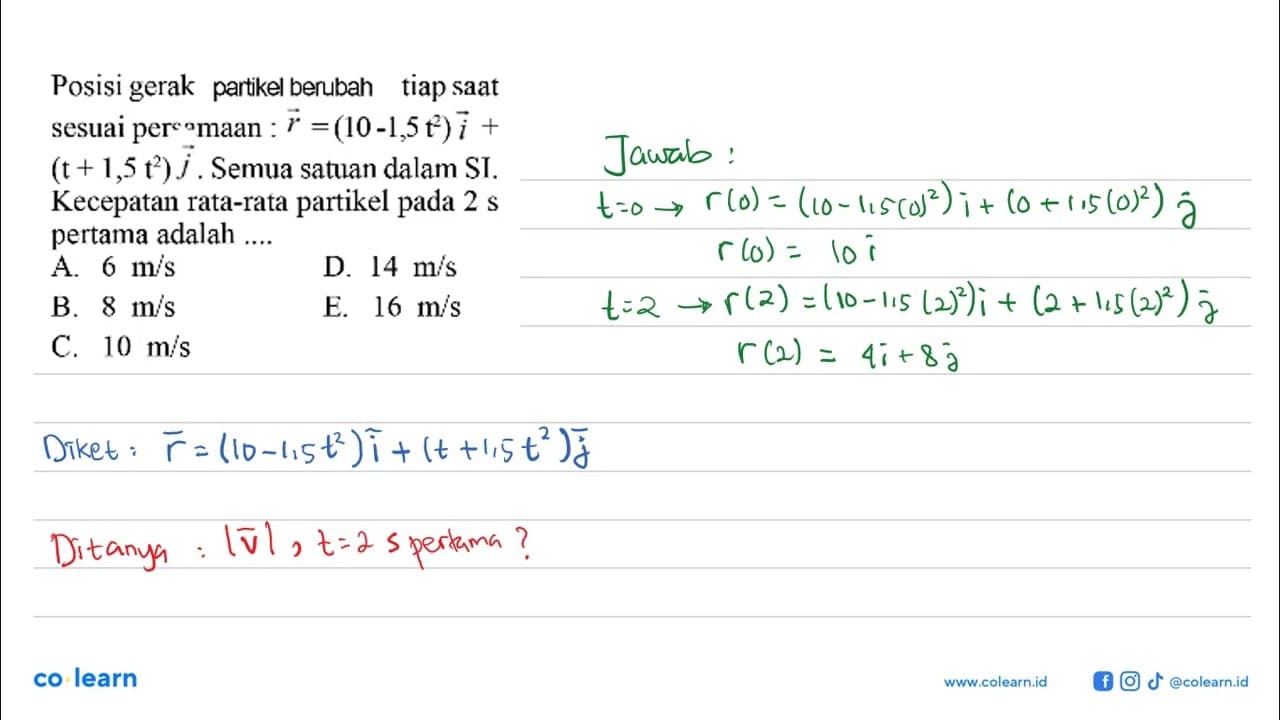 Posisi gerak partikel berubah tiap saat
sesuai persamaan : r⃗ = (10 -1,5 t²) i⃗ +
(t + 1,5 t²) j⃗ . Semua satuan dalam SI.
Kecepatan rata-rata partikel pada 2 s
pertama adalah ....
A. 6 m/s D. 14 m/s
B. 8 m/s E. 16 m/s
C. 10 m/s
Jawab :
t=0 → r(0) = (10 - 1,5(0)²) i + (0 + 1,5(0)²) j̄
r(0) = 10 ī
t=2 → r(2) = (10 - 1,5 (2)²) i + (2 + 1,5(2)²) j̄
r(2) = 4ī + 8j̄
Diket : r̄ = (10-1,5t²) ī + (t +1,5t²) j̄
Ditanya : |v̄| , t=2 s pertama ?
co learn
www.colearn.id
@colearn.id